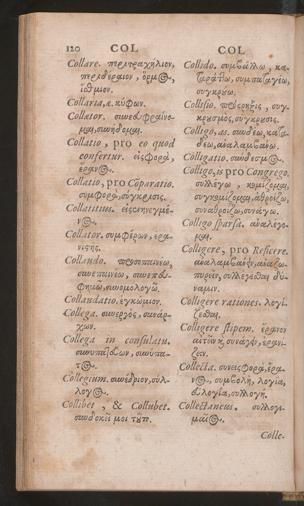 120 COL
Collare. περιτραχήλιον,
περιδέραιον, ὅρμος,
ἴσθμιον.
Collaria, æ. κύφων.
Collator. συνευφραίνο-
μαι, συνήδομαι.
Collatio, pro eo quod
confertur. εἰσφορά,
ἔρανος.
Collatio, pro Coparatio.
συμφορά, σύγκρισις.
Collatitius. εἰσενηνεγμέ-
νος.
Collator. συμφέρων, ἐρα-
νιστής.
Collaudo.
συνεπαινέω,
Collaudatio. ἐγκώμιον.
Collega. συνεργός, συνάρ-
χων.
Collega in consulatu.
συνυπατεύων, συνύπα-
τος.
Collegium. συνέδριον, σύλ-
λογος.
Collibet, & Collubet.
συνδοκεῖ μοι τῦτο.
COL
Collido. συμβάλλω, κα-
ταράττω, συμπαταγέω,
συγκρύω.
Collisio. πρόσκρουσις, συγ-
κρουσμός, σύγκρουσις.
Colligo, as. συνδέω, κατα-
δέω, ἀναλαμβάνω.
Colligatio. σύνδεσμος.
Colligo, is pro Congrego.
συλλέγω, κομίζομαι,
συγκομίζομαι, ἀθροίζω,
συναθροίζω, συνάγω.
Colligo sparsa. ἀναλέγο-
μαι.
Colligere, pro Reficere.
ἀναλαμβάνειν,
συλλέγεσθαι δύ-
ναμιν.
Colligere rationes. λογί-
ζεσθαι.
Colligere stipem. ἔρανον
αἰτεῖν κ̀ συνάγειν, ἐρανί-
ζειν.
Collecta. συνεισφορά, ἔρα-
νος, συμβολή, λογία,
εὐλογία, συλλογή.
Collectaneus. συλλογι-
μαῖος.
Colle-